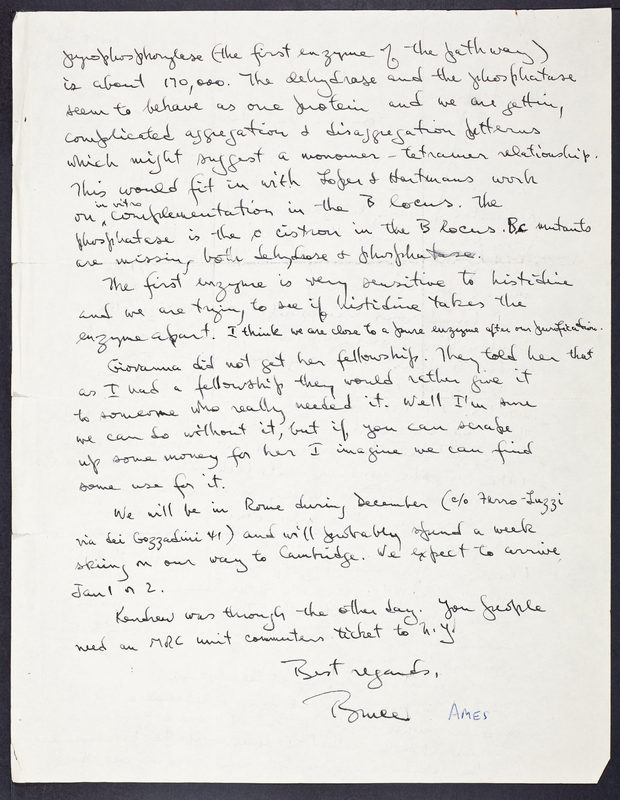 pyrophosphorylase (the first enzyme of the pathway)
is about 170,000. The dehydrase and the phosphatase
seem to behave as one protein and we are getting
complicated aggregation & disaggregation patterns
which might suggest a monomer - tetramer relationship.
This would fit in with Loper & Hartmans work
on in vitro complementation in the B locus. The
phosphatase is the c cistron in the B locus. Bc mutants
are missing both dehydrase & phosphatase.
The first enzyme is very sensitive to histidine
and we are trying to see if histidine takes the
enzyme apart. I think we are close to a pure enzyme after our purification.
Giovanna did not get her fellowship. They told her that
as I had a fellowship they would rather give it
to someone who really needed it. Well I'm sure
we can do without it, but if you can scrape
up some money for her I imagine we can find
some use for it.
We will be in Rome during December (c/o Ferro-Luzzi
via dei Gozzadini 41) and will probably spend a week
skiing on our way to Cambridge. We expect to arrive
Jan 1 or 2.
Kendrew was through the other day. You people
need an MRC unit commuters ticket to N.Y.
Best regards,
Bruce AMES